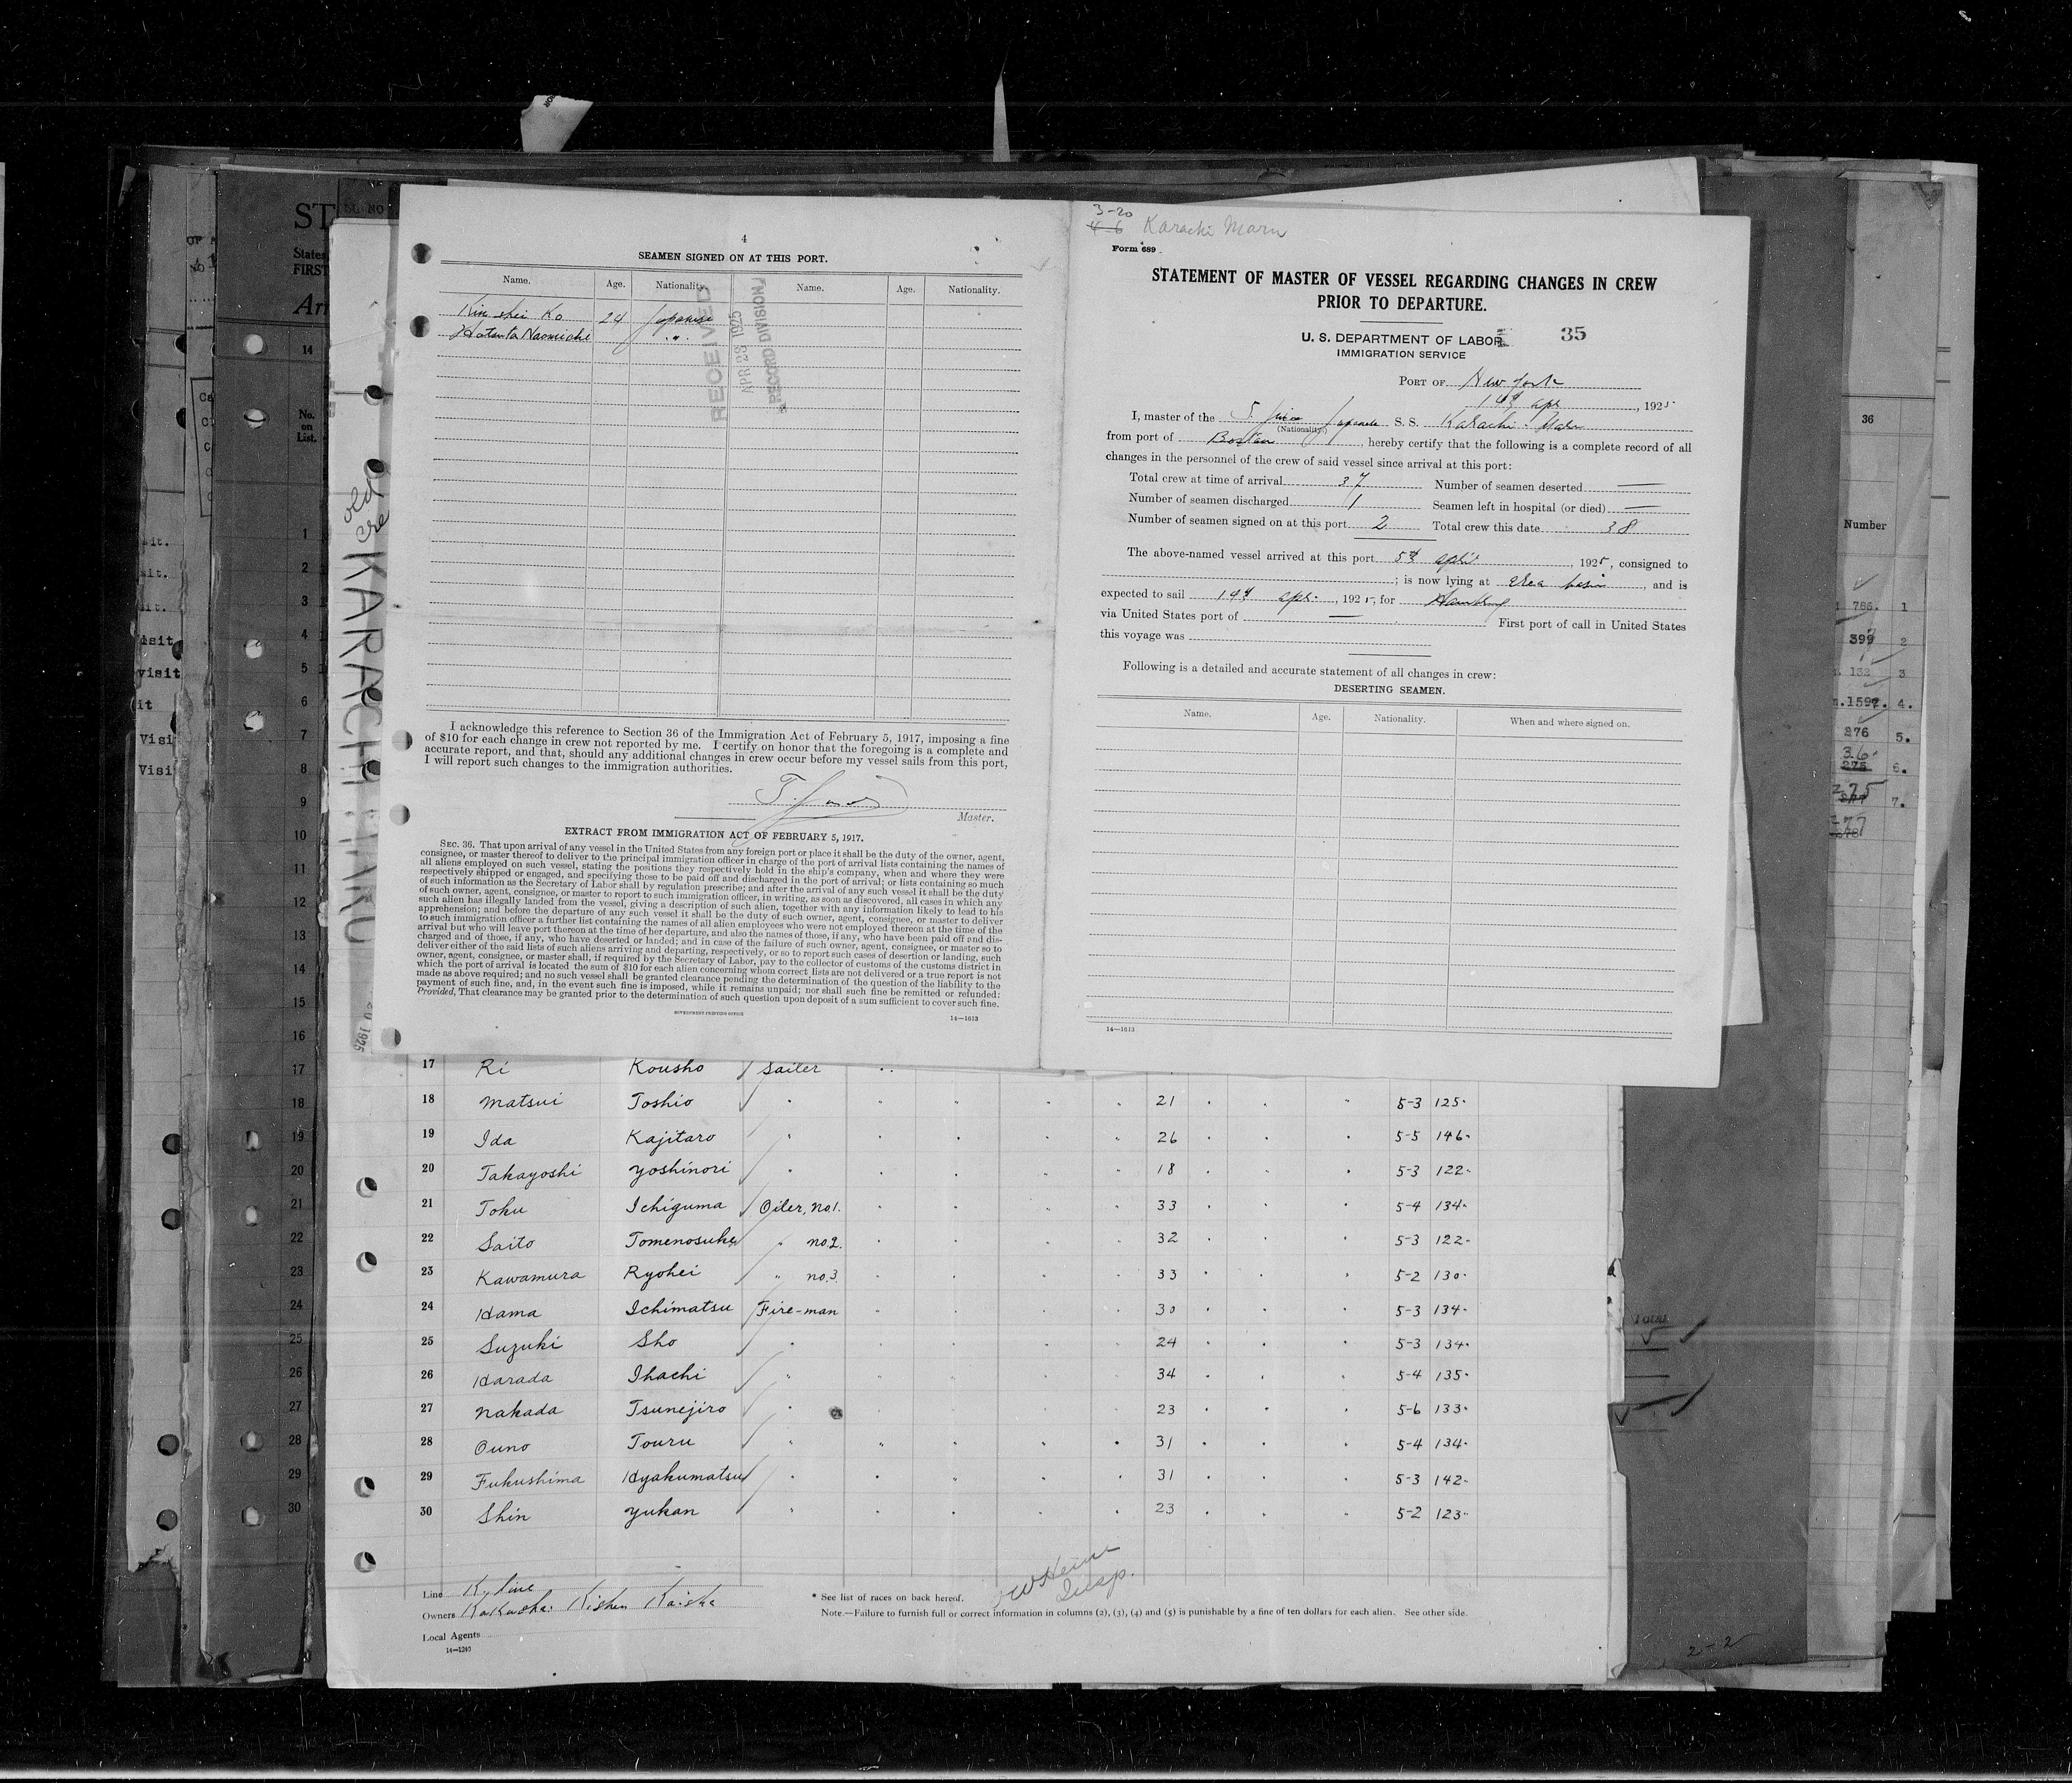 4
SEAMEN SIGNED ON AT THIS PORT.
Name. Age. Nationality. Name. Age. Nationality.
Kin shei Ko 24 Japanese
Hatanta Naomichi "
RECEIVED
APR 23 1925
RECORD DIVISION
I acknowledge this reference to Section 36 of the Immigration Act of February 5, 1917, imposing a fine
of $10 for each change in crew not reported by me. I certify on honor that the foregoing is a complete and
accurate report, and that, should any additional changes in crew occur before my vessel sails from this port,
I will report such changes to the immigration authorities.
Master.
EXTRACT FROM IMMIGRATION ACT OF FEBRUARY 5, 1917.
SEC. 36. That upon arrival of any vessel in the United States from any foreign port or place it shall be the duty of the owner, agent,
consignee, or master thereof to deliver to the principal immigration officer in charge of the port of arrival lists containing the names of
all aliens employed on such vessel, stating the positions they respectively hold in the ship's company, when and where they were
respectively shipped or engaged, and specifying those to be paid off and discharged in the port of arrival; or lists containing so much
of such information as the Secretary of Labor shall by regulation prescribe; and after the arrival of any such vessel it shall be the duty
of such owner, agent, consignee, or master to report to such immigration officer, in writing, as soon as discovered, all cases in which any
such alien has illegally landed from the vessel, giving a description of such alien, together with any information likely to lead to his
apprehension; and before the departure of any such vessel it shall be the duty of such owner, agent, consignee, or master to deliver
to such immigration officer a further list containing the names of all alien employees who were not employed thereon at the time of the
arrival but who will leave port thereon at the time of her departure, and also the names of those, if any, who have been paid off and dis-
charged and of those, if any, who have deserted or landed; and in case of the failure of such owner, agent, consignee, or master so to
deliver either of the said lists of such aliens arriving and departing, respectively, or so to report such cases of desertion or landing, such
owner, agent, consignee, or master shall, if required by the Secretary of Labor, pay to the collector of customs of the customs district in
which the port of arrival is located the sum of $10 for each alien concerning whom correct lists are not delivered or a true report is not
made as above required; and no such vessel shall be granted clearance pending the determination of the question of the liability to the
payment of such fine, and, in the event such fine is imposed, while it remains unpaid; nor shall such fine be remitted or refunded:
Provided, That clearance may be granted prior to the determination of such question upon deposit of a sum sufficient to cover such fine.
GOVERNMENT PRINTING OFFICE
14—1613
3-20
4-6 Karachi Maru
Form 689
STATEMENT OF MASTER OF VESSEL REGARDING CHANGES IN CREW
PRIOR TO DEPARTURE.
U. S. DEPARTMENT OF LABOR 35
IMMIGRATION SERVICE
PORT OF New York
14th apr, 1925
I, master of the Japanese S. S. Karachi Maru
(Nationality)
from port of Boston, hereby certify that the following is a complete record of all
changes in the personnel of the crew of said vessel since arrival at this port:
Total crew at time of arrival 37 Number of seamen deserted —
Number of seamen discharged 1 Seamen left in hospital (or died) —
Number of seamen signed on at this port 2 Total crew this date 38
The above-named vessel arrived at this port 5th april, 1925, consigned to
; is now lying at Erea basin, and is
expected to sail 14th apr., 1925, for Hamburg
via United States port of — First port of call in United States
this voyage was
Following is a detailed and accurate statement of all changes in crew:
DESERTING SEAMEN.
Name. Age. Nationality. When and where signed on.
14—1613
KARACHI MARU
17 Ri Kousho Sailer
18 Matsui Toshio " 21 5-3 125
19 Ida Kajitaro " 26 5-5 146
20 Takayoshi Yoshinori " 18 5-3 122
21 Toku Ichiguma Oiler, no1. 33 5-4 134
22 Saito Tomenosuke " no.2. 32 5-3 122
23 Kawamura Ryohei " no.3. 33 5-2 130
24 Hama Ichimatsu Fire-man 30 5-3 134
25 Suzuki Sho " 24 5-3 134
26 Harada Ihachi " 34 5-4 135
27 Nakada Tsunejiro " 23 5-6 133
28 Ouno Touru " 31 5-4 134
29 Fukushima Hyakumatsu " 31 5-3 142
30 Shin Yukan " 23 5-2 123
Line K. line
Owners Kokusai Kisen Kaisha
Local Agents
14—1240
* See list of races on back hereof.
Note.—Failure to furnish full or correct information in columns (2), (3), (4) and (5) is punishable by a fine of ten dollars for each alien. See other side.
W Heine
Insp.
ST
States
FIRST
Arr
No.
on
List.
36
Number
2-2